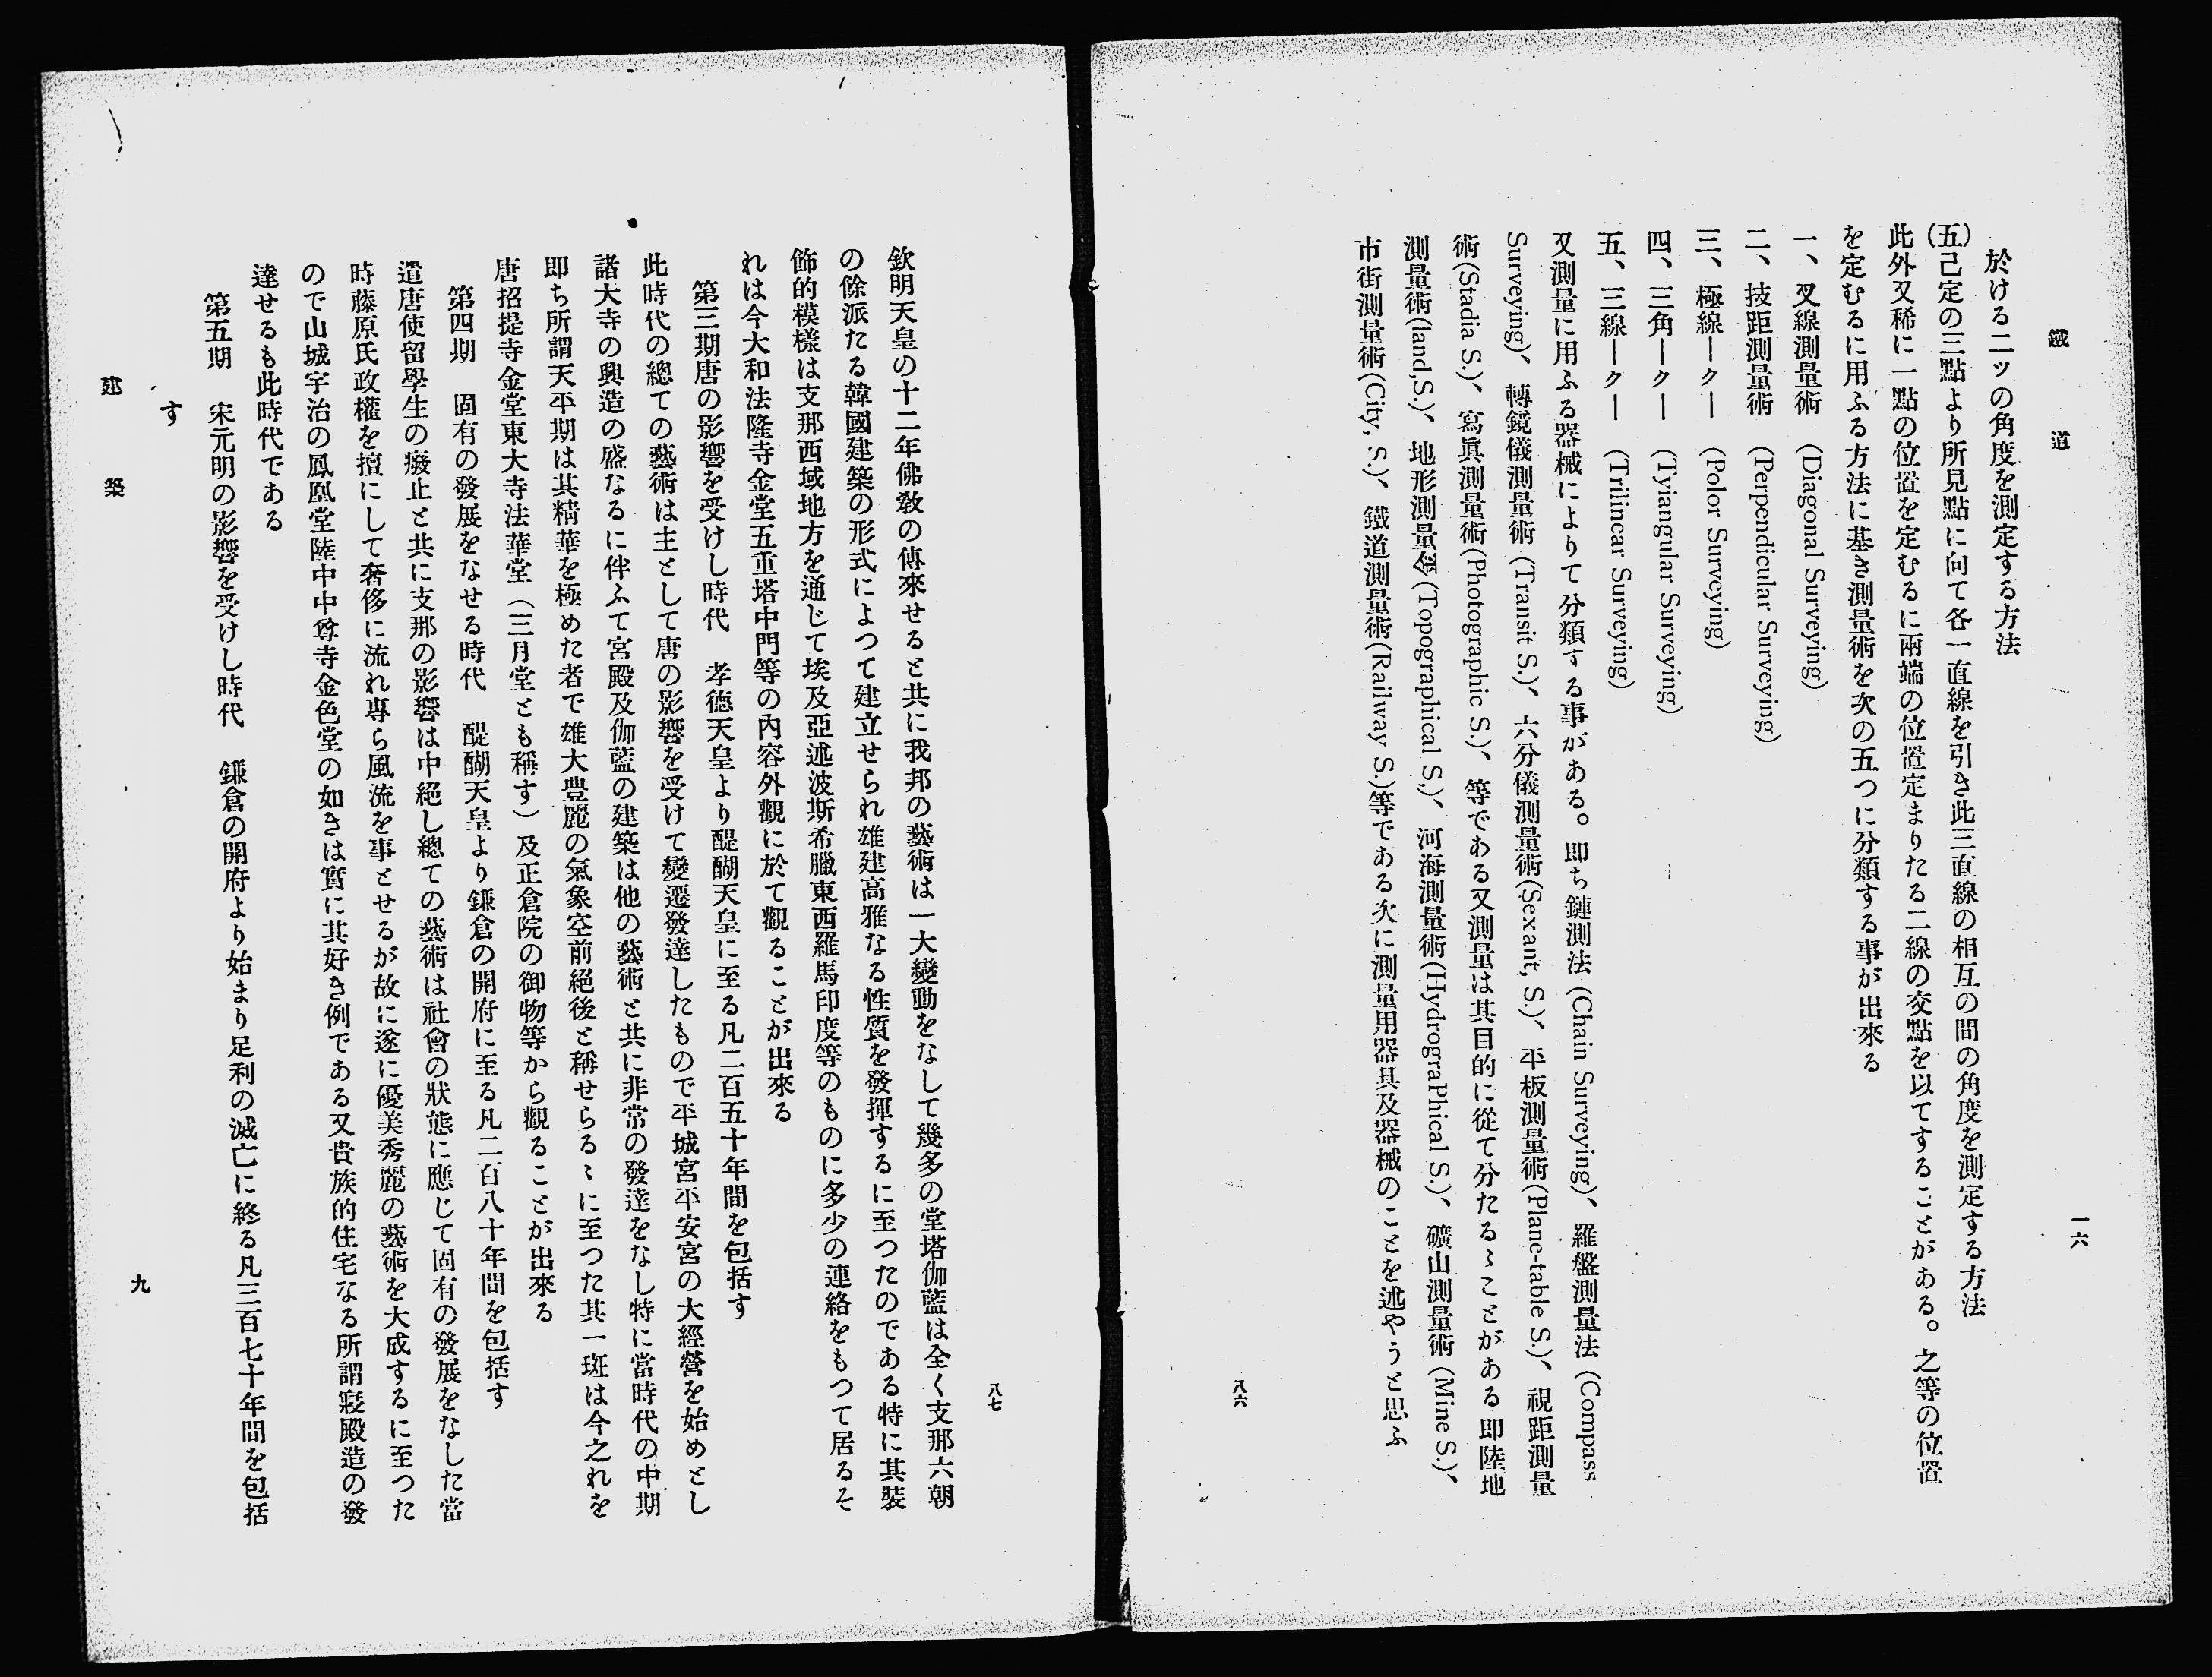 鐵道
一六
於ける二ツの角度を測定する方法
(五)己定の三點より所見點に向て各一直線を引き此三直線の相互の間の角度を測定する方法
此外又稀に一點の位置を定むるに兩端の位置定まりたる二線の交點を以てすることがある。之等の位置
を定むるに用ふる方法に基き測量術を次の五つに分類する事が出來る
一、叉線測量術 (Diagonal Surveying)
二、技距測量術 (Perpendicular Surveying)
三、極線ー〃ー (Polor Surveying)
四、三角ー〃ー (Tyiangular Surveying)
五、三線ー〃ー (Trilinear Surveying)
又測量に用ふる器械によりて分類する事がある。即ち鏈測法 (Chain Surveying)、羅盤測量法 (Compass
Surveying)、轉鏡儀測量術 (Transit S.)、六分儀測量術(Sexant, S.)、平板測量術(Plane-table S.)、視距測量
術(Stadia S.)、寫眞測量術(Photographic S.)、等である又測量は其目的に從て分たるゝことがある即陸地
測量術(land,S.)、地形測量(Topographical S.)、河海測量術(HydrograPhical S.)、礦山測量術 (Mine S.)、
市街測量術(City, S.)、鐵道測量術(Railway S.)等である次に測量用器具及器械のことを述やうと思ふ
八六
八七
欽明天皇の十二年佛敎の傳來せると共に我邦の藝術は一大變動をなして幾多の堂塔伽藍は全く支那六朝
の餘派たる韓國建築の形式によつて建立せられ雄建高雅なる性質を發揮するに至つたのである特に其裝
飾的模樣は支那西域地方を通じて埃及亞述波斯希臘東西羅馬印度等のものに多少の連絡をもつて居るそ
れは今大和法隆寺金堂五重塔中門等の內容外觀に於て觀ることが出來る
第三期唐の影響を受けし時代 孝德天皇より醍醐天皇に至る凡二百五十年間を包括す
此時代の總ての藝術は主として唐の影響を受けて變遷發達したもので平城宮平安宮の大經營を始めとし
諸大寺の興造の盛なるに伴ふて宮殿及伽藍の建築は他の藝術と共に非常の發達をなし特に當時代の中期
即ち所謂天平期は其精華を極めた者で雄大豊麗の氣象空前絕後と稱せらるゝに至つた其一斑は今之れを
唐招提寺金堂東大寺法華堂(三月堂とも稱す)及正倉院の御物等から觀ることが出來る
第四期 固有の發展をなせる時代 醍醐天皇より鎌倉の開府に至る凡二百八十年間を包括す
遣唐使留學生の癈止と共に支那の影響は中絕し總ての藝術は社會の狀態に應じて固有の發展をなした當
時藤原氏政權を擅にして奢侈に流れ專ら風流を事とせるが故に遂に優美秀麗の藝術を大成するに至つた
ので山城宇治の鳳凰堂陸中中尊寺金色堂の如きは實に其好き例である又貴族的住宅なる所謂寢殿造の發
達せるも此時代である
第五期 宋元明の影響を受けし時代 鎌倉の開府より始まり足利の滅亡に終る凡三百七十年間を包括
す
建築
九